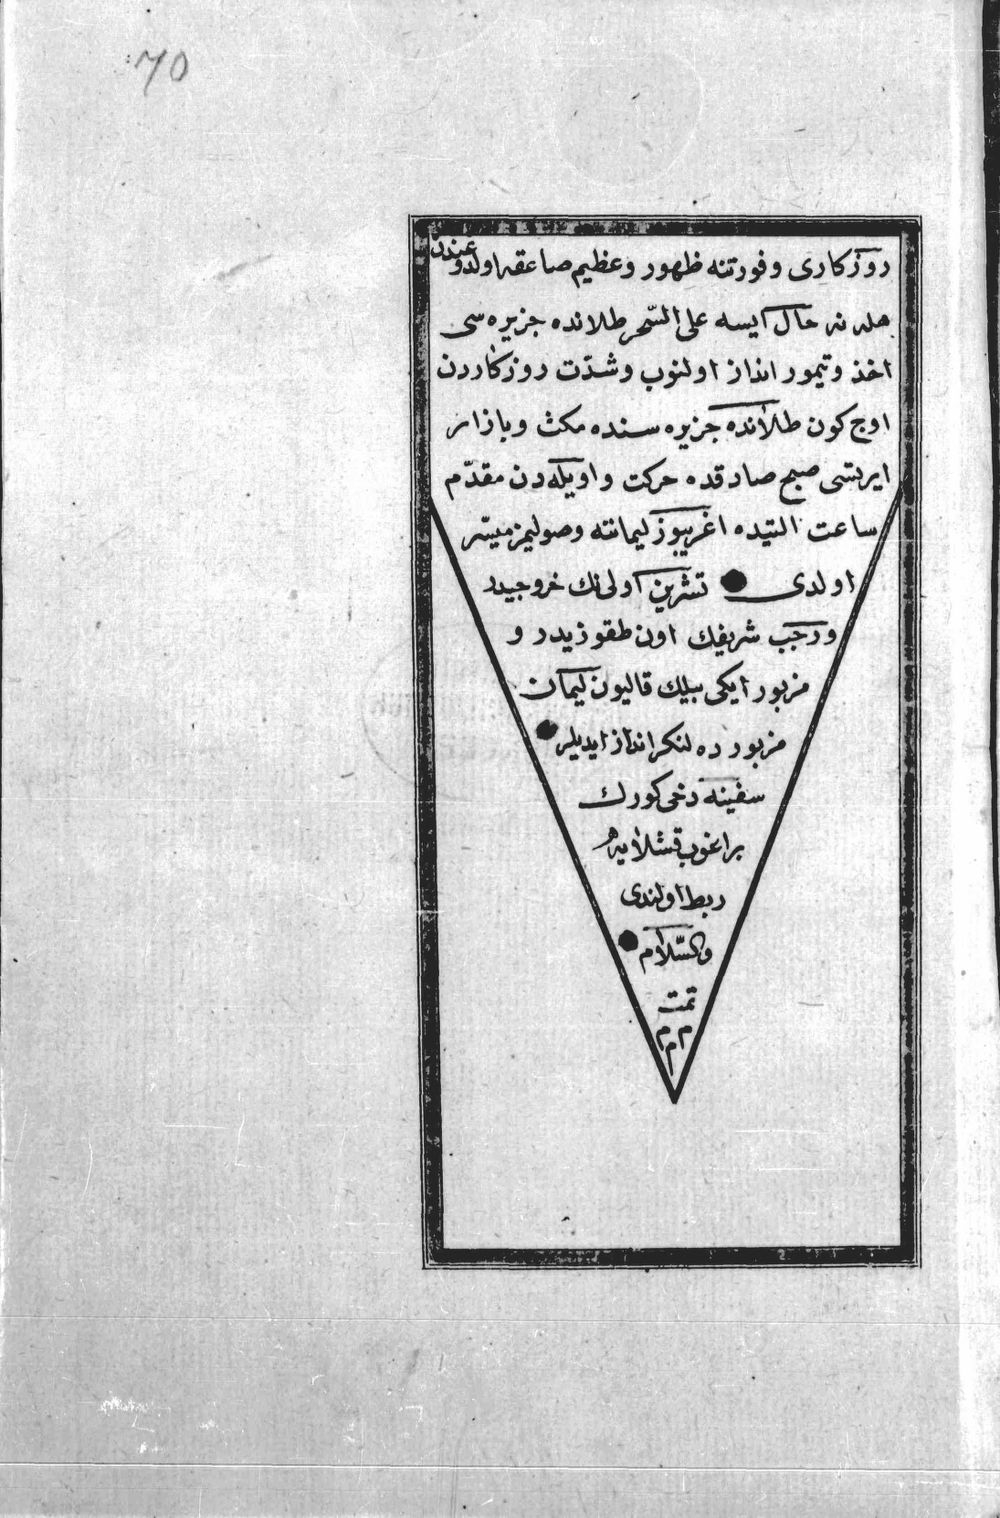 70
روزكاری وفورتنه ظهور وعظیم صاعقه اولدوغندن
هله نه حال ایسه علی السّحر طلانده جزیره سی
اخذ وتیمور انداز اولنوب وشدّت روزكاردن
اوج كون طلانده جزیره سنده مكث وبازار
ایرتسی صبح صادقده حركت واویله دن مقدّم
ساعت التیده اغریبوز لیماننه وصولیمز میسّر
اولدی ● تشرین اولی نك خروجیدر
ورجب شریفك اون طقوزیدر و
مزبور ایكی بیلك قالیون لیمان
مزبورده لنكر انداز ایدیلر ●
سفینه دخی كورك
براغوب قشلایه
ربط اولندی
والسّلام ●
تمت
م م م